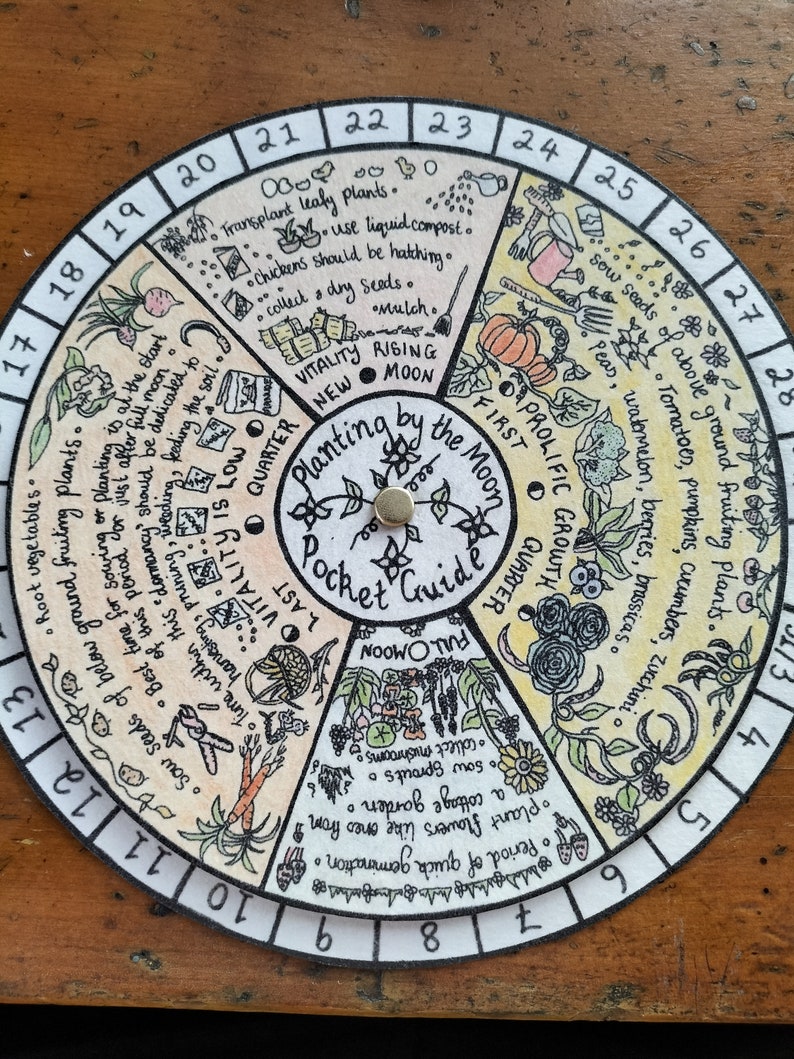 Planting by the Moon
Pocket Guide
VITALITY RISING
NEW MOON
Transplant leafy plants.
use liquid compost.
Chickens should be hatching
collect & dry seeds.
Mulch.
PROLIFIC GROWTH
FIRST QUARTER
sow seeds of above ground fruiting plants.
Tomatoes, pumpkins, cucumbers, zucchini.
Peas, watermelon, berries, brassicas.
FULL MOON
collect mushrooms.
sow sprouts.
a cottage garden.
plant flowers like ones from
Period of quick germination.
VITALITY IS LOW
LAST QUARTER
Root vegetables.
sow seeds of below ground fruiting plants.
Best time for sowing or planting is at the start
of this period (or just after full moon
Time within this "dormancy" should be dedicated to
harvesting, pruning, weeding, feeding the soil.
17
18
19
20
21
22
23
24
25
26
27
28
3
4
5
6
7
8
9
10
11
12
13